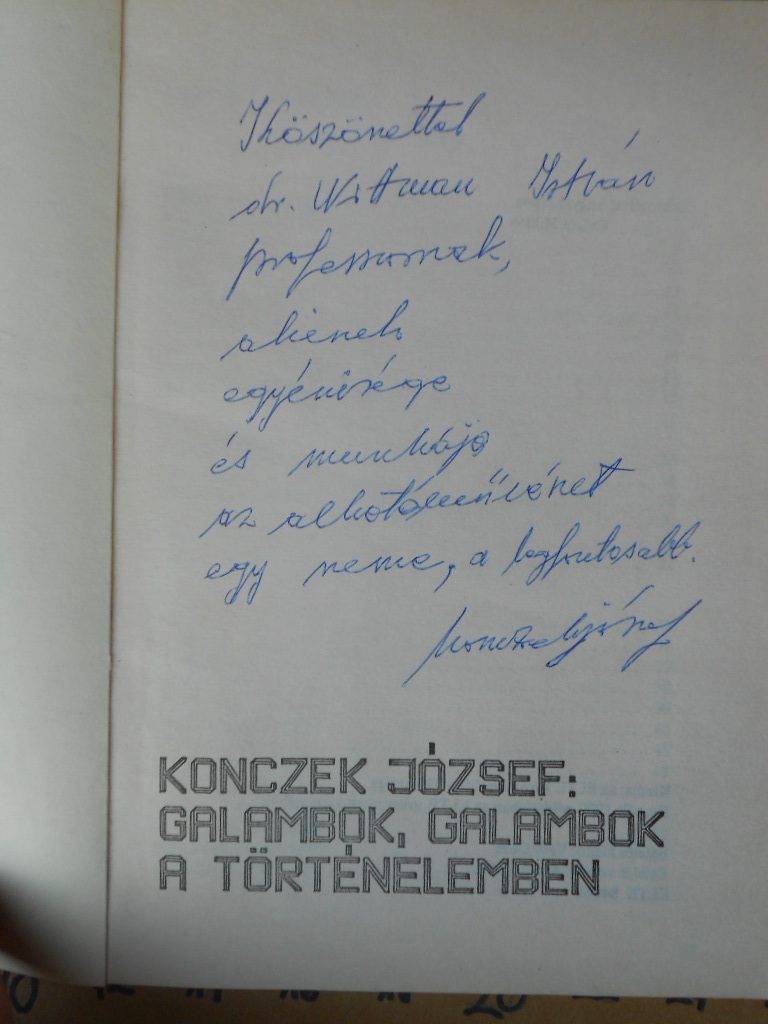 Köszönettel
dr. Wittman István
professzornak,
akinek
egyénisége
és munkája
az alkotóművészet
egy neme, a legfontosabb.
Konczek József
KONCZEK JÓZSEF:
GALAMBOK, GALAMBOK
A TÖRTÉNELEMBEN
20